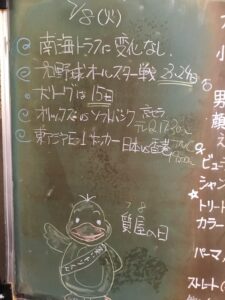 7/8(火)
南海トラフに変化なし.
プロ野球オールスター戦 23.24日
大リーグは15日
オリックスvsソフトバンク
東アジアE-1サッカー日本vs香港
7 8
質屋の日
男
顔
ビュー
シャン
トリート
カラー
パーマ
ストレート